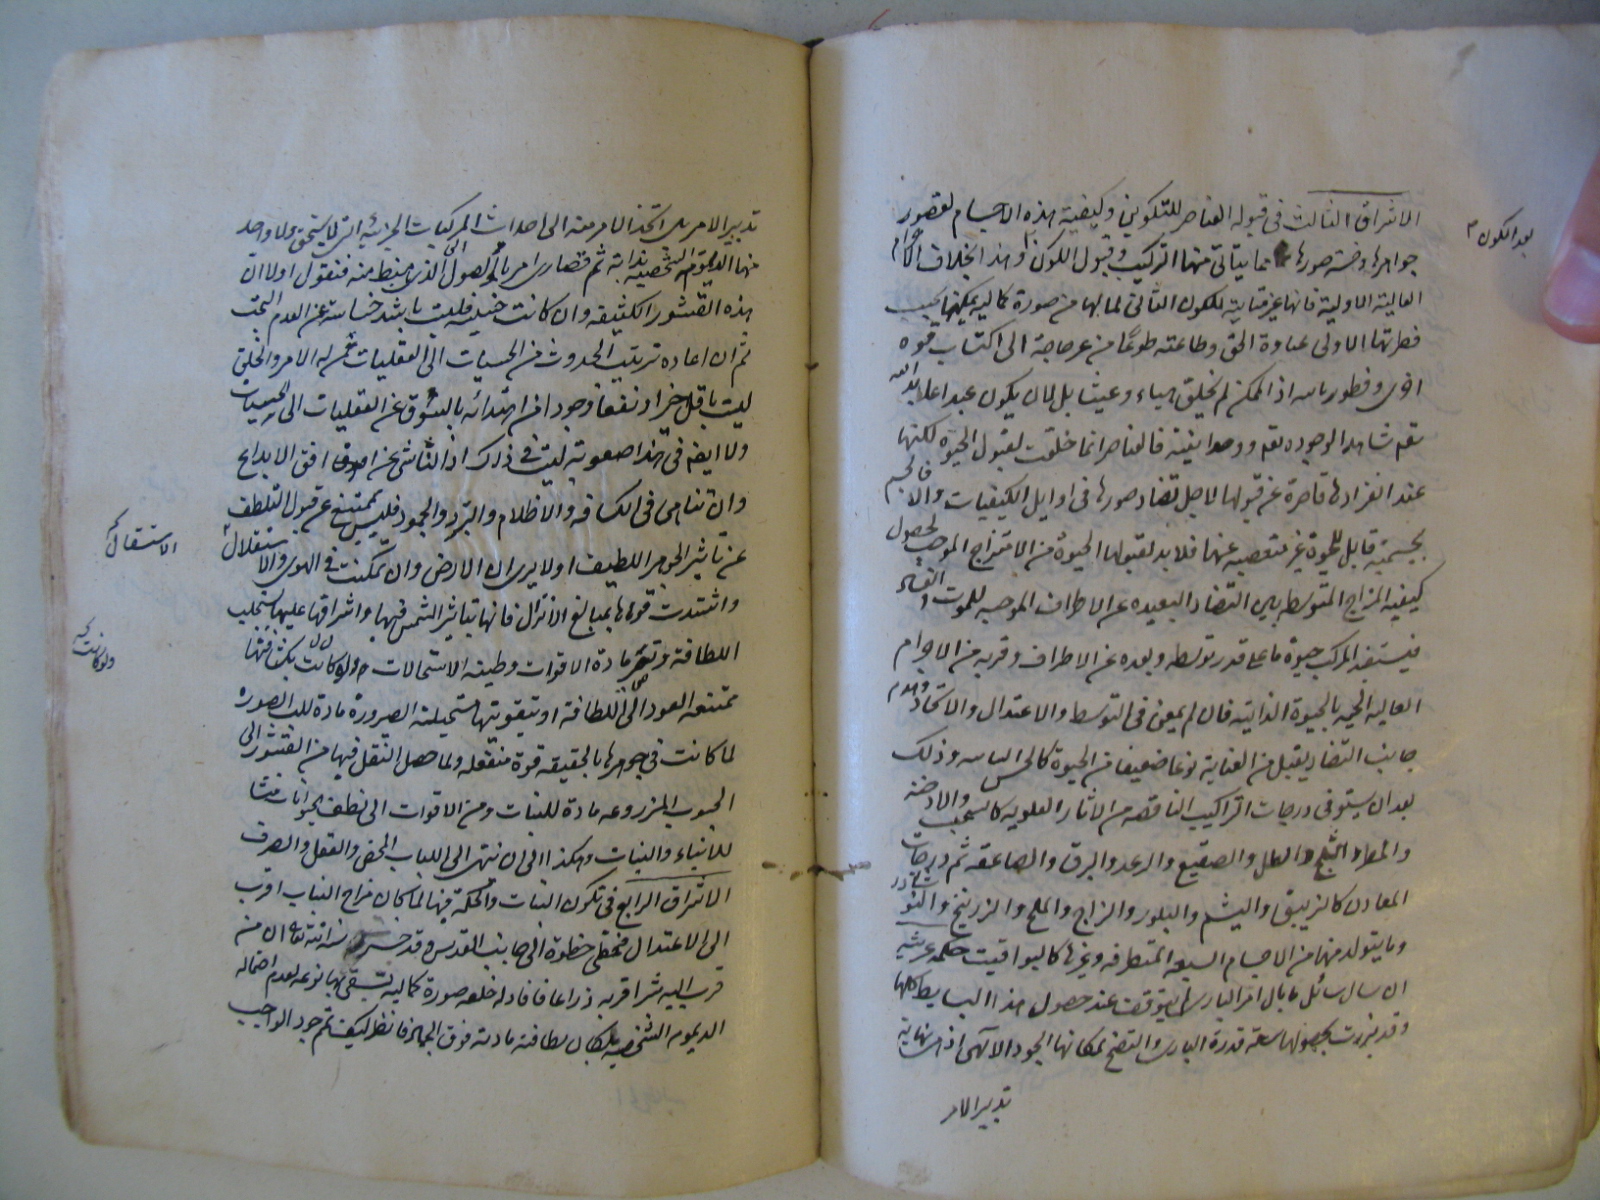 الاشراق الثالث فى قبول العناصر للتكوين وكيفية هذه الاجسام لقصور
بعد الكون
جواهرها وخسة صورها مما يتاتى منها التركيب وقبول الكون وهذا بخلاف الاجرام
العالية الاولية فانها غير قابلة للكون الثانى لما لها من صورة كمالية يمكنها بحسب
فطرتها الاولى عبادة الحق وطاعته طوعا من غير حاجة الى اكتساب قوة
اخرى وفطور باسه اذ الممكن لم يخلق هباء وعبثا بل لان يكون عبدا عابدا لله
تعم شاهدا لوجوده تعم ووحدانيته فالعناصر انما خلقت لقبول الحيوة لكنها
عند انفرادها قاصرة عن قبولها لاجل تضاد صورها فى اوايل الكيفيات والا فالجسم
بجسميته قابل للحيوة غير متعصيه عنها فلا بد لقبولها الحيوة من الامتزاج الموجب لحصول
كيفيه المزاج المتوسط بين التضاد البعيده عن الاطراف الموجبه للموت والفساد
فيستفيد المركب حيوة ما على قدر توسطه وبعده عن الاطراف وقربه من الاجرام
العاليه الحيه بالحيوة الذاتيه فان لم يمعن فى التوسط والاعتدال والاتحاد وهدم
جانب التضاد يقبل من العناية نوعا ضعيفا من الحيوة كالحس الباسه وذلك
بعد ان يستوفى درجات التراكيب الناقصه من الاثار العلويه كالسحب والادخنة
والمطر والثلج والطل والصقيع والرعد والبرق والصاعقه ثم درجات
المعادن كالزيبق واليشم والبلور والزاج والملح والزرنيخ والنوشادر
وما يتولد منها من الاجسام السبعه المتطرقه وغيرها كاليواقيت حكمه عرشيه
ان سال سائل ما بال امر البارى لم يتوقف عند حصول هذا البسايط كلها
وقد برزت بحصولها سعة قدرة البارى واتضح بمكانها الجود الالهى اذ
تدبير الامر
تدبير الامر بل اتخذ الامر منه الى احداث المركبات الجزئيه التى لا يستحق ولا واحد
منها الديمومة الشخصيه بذاته ثم قصارى امرها الوصول الى الذى هبط منه فنقول اولا ان
هذه القشور الكثيفه وان كانت خسيسه فليست باشد خساسة عن العدم البحت
ثم ان اعاده ترتيب الحدوث من الحسيات الى العقليات ممن له الامر والخلق
ليست باقل خيرا ونفعا وجودا من ابتدائه بالسوق عن العقليات الى الحسيات
ولا ايضا فى هذا صعوبة ليست فى ذلك اذ الناشى عن افق الابداع
وان تناهى فى الكثافه والاظلام والتبرد والجمود فليس بممتنع عن قبول التلطف
عن تاثير الجوهر اللطيف اولا يرى ان الارض وان تمكنت فى الهوى والاستقلال
الاستفال
واشتدت قواها بمبالغ الانزال فانها بتاثير الشمس فيها واشراقها عليها يستجلب
اللطافة وتصير مادة الاقوات وطينه الاستحالات ولو كانت بكثافتها
ولو كانت
ممتنعه العود الى اللطافة او بتقويتها مستحيلة الصيرورة مادة للب الصوره
لما كانت فى جوهرها بالحقيقه قوة منفعله ولما حصل النقل فيها من القشور الى
الحبوب المزروعه مادة للنبات ومن الاقوات الى نطف الحيوانات منشا
للابناء والبنات وهكذا الى ان تنتهى الى اللباب المحض والعقل والصرف
الاشراق الرابع فى تكون النبات والحكمة فيها لما كان مزاج النبات اقرب
الى الاعتدال فخطى خطوة الى جانب القدس وقد سنة الله تعالى ان من
قرب اليه شبرا قربه ذراعا فافادله خلعه صورة كماليه يستبقى بها نوعه لعدم احتماله
الديموم الشخصيه لمكان لطافته مادته فوق الجماد فانظر كيف تم جود الواجب